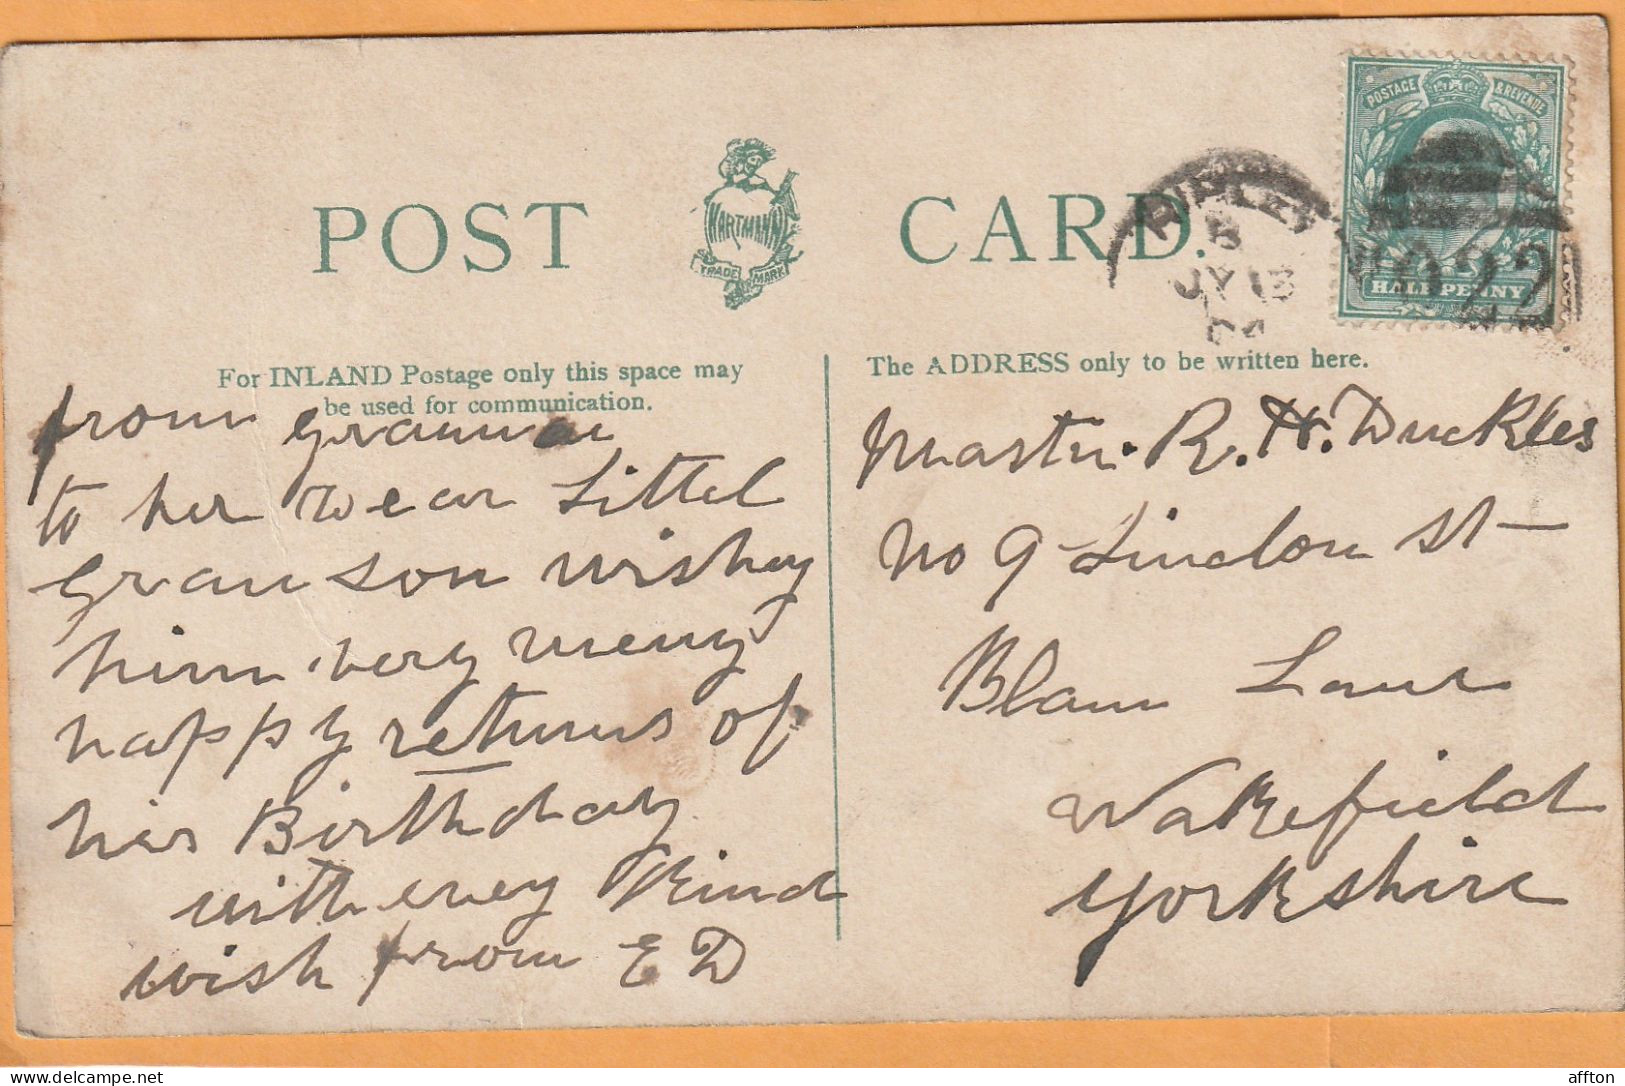 POST CARD.
HARTMANN
TRADE MARK
POSTAGE & REVENUE
HALF PENNY
RIPLEY
B
JY 13
922
For INLAND Postage only this space may
be used for communication.
The ADDRESS only to be written here.
from granma
to her dear Littel
gran son wishing
him very meny
happy returns of
his Birthday
with evey Kind
wish from E D
Master. R. H. Duckles
No 9 Linclon St
Blam Lane
Wakefield
Yorkshire
affton